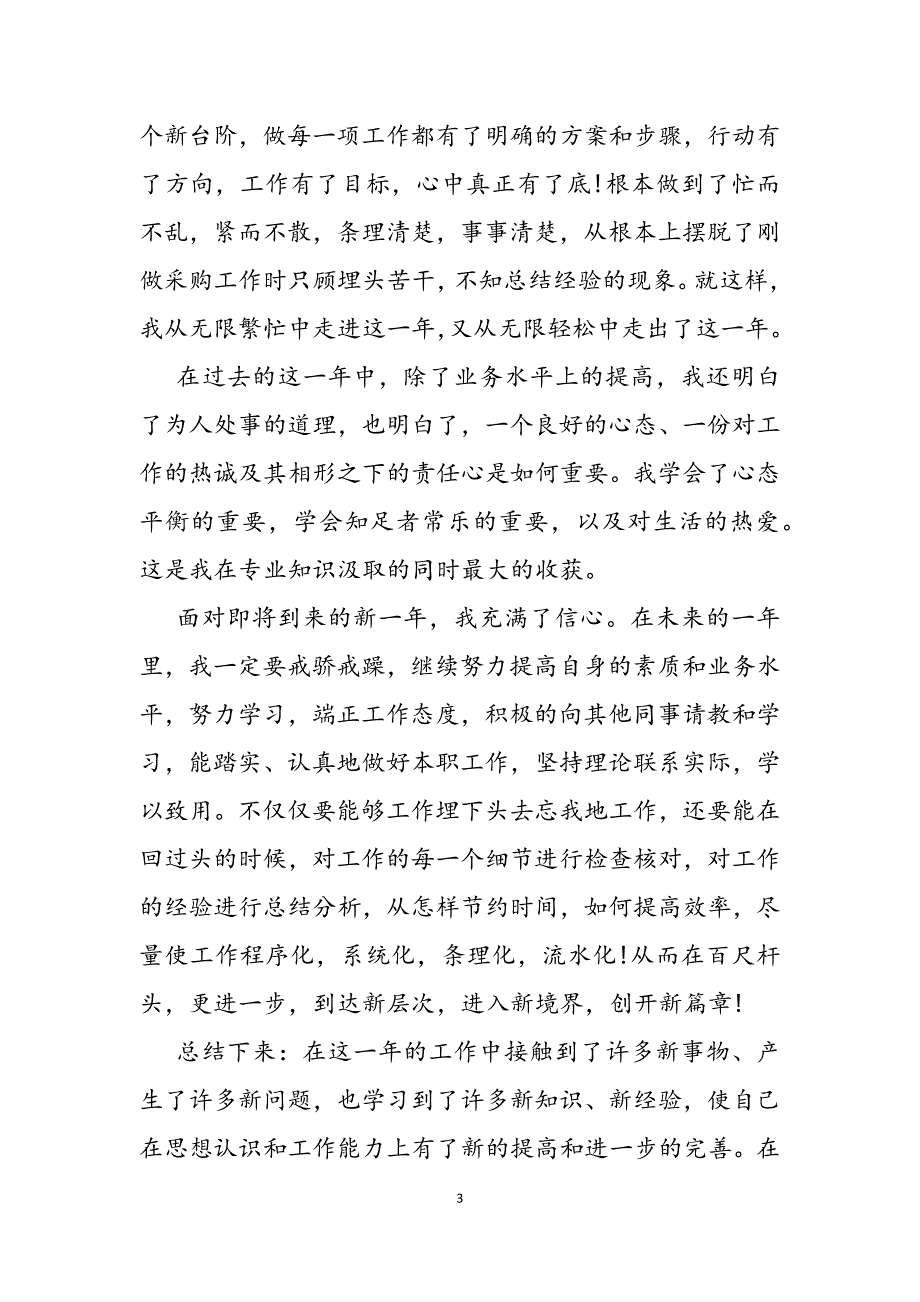 个新台阶，做每一项工作都有了明确的方案和步骤，行动有
了方向，工作有了目标，心中真正有了底!根本做到了忙而
不乱，紧而不散，条理清楚，事事清楚，从根本上摆脱了刚
做采购工作时只顾埋头苦干，不知总结经验的现象。就这样，
我从无限繁忙中走进这一年，又从无限轻松中走出了这一年。
在过去的这一年中，除了业务水平上的提高，我还明白
了为人处事的道理，也明白了，一个良好的心态、一份对工
作的热诚及其相形之下的责任心是如何重要。我学会了心态
平衡的重要，学会知足者常乐的重要，以及对生活的热爱。
这是我在专业知识汲取的同时最大的收获。
面对即将到来的新一年，我充满了信心。在未来的一年
里，我一定要戒骄戒躁，继续努力提高自身的素质和业务水
平，努力学习，端正工作态度，积极的向其他同事请教和学
习，能踏实、认真地做好本职工作，坚持理论联系实际，学
以致用。不仅仅要能够工作埋下头去忘我地工作，还要能在
回过头的时候，对工作的每一个细节进行检查核对，对工作
的经验进行总结分析，从怎样节约时间，如何提高效率，尽
量使工作程序化，系统化，条理化，流水化!从而在百尺杆
头，更进一步，到达新层次，进入新境界，创开新篇章!
总结下来：在这一年的工作中接触到了许多新事物、产
生了许多新问题，也学习到了许多新知识、新经验，使自己
在思想认识和工作能力上有了新的提高和进一步的完善。在
3